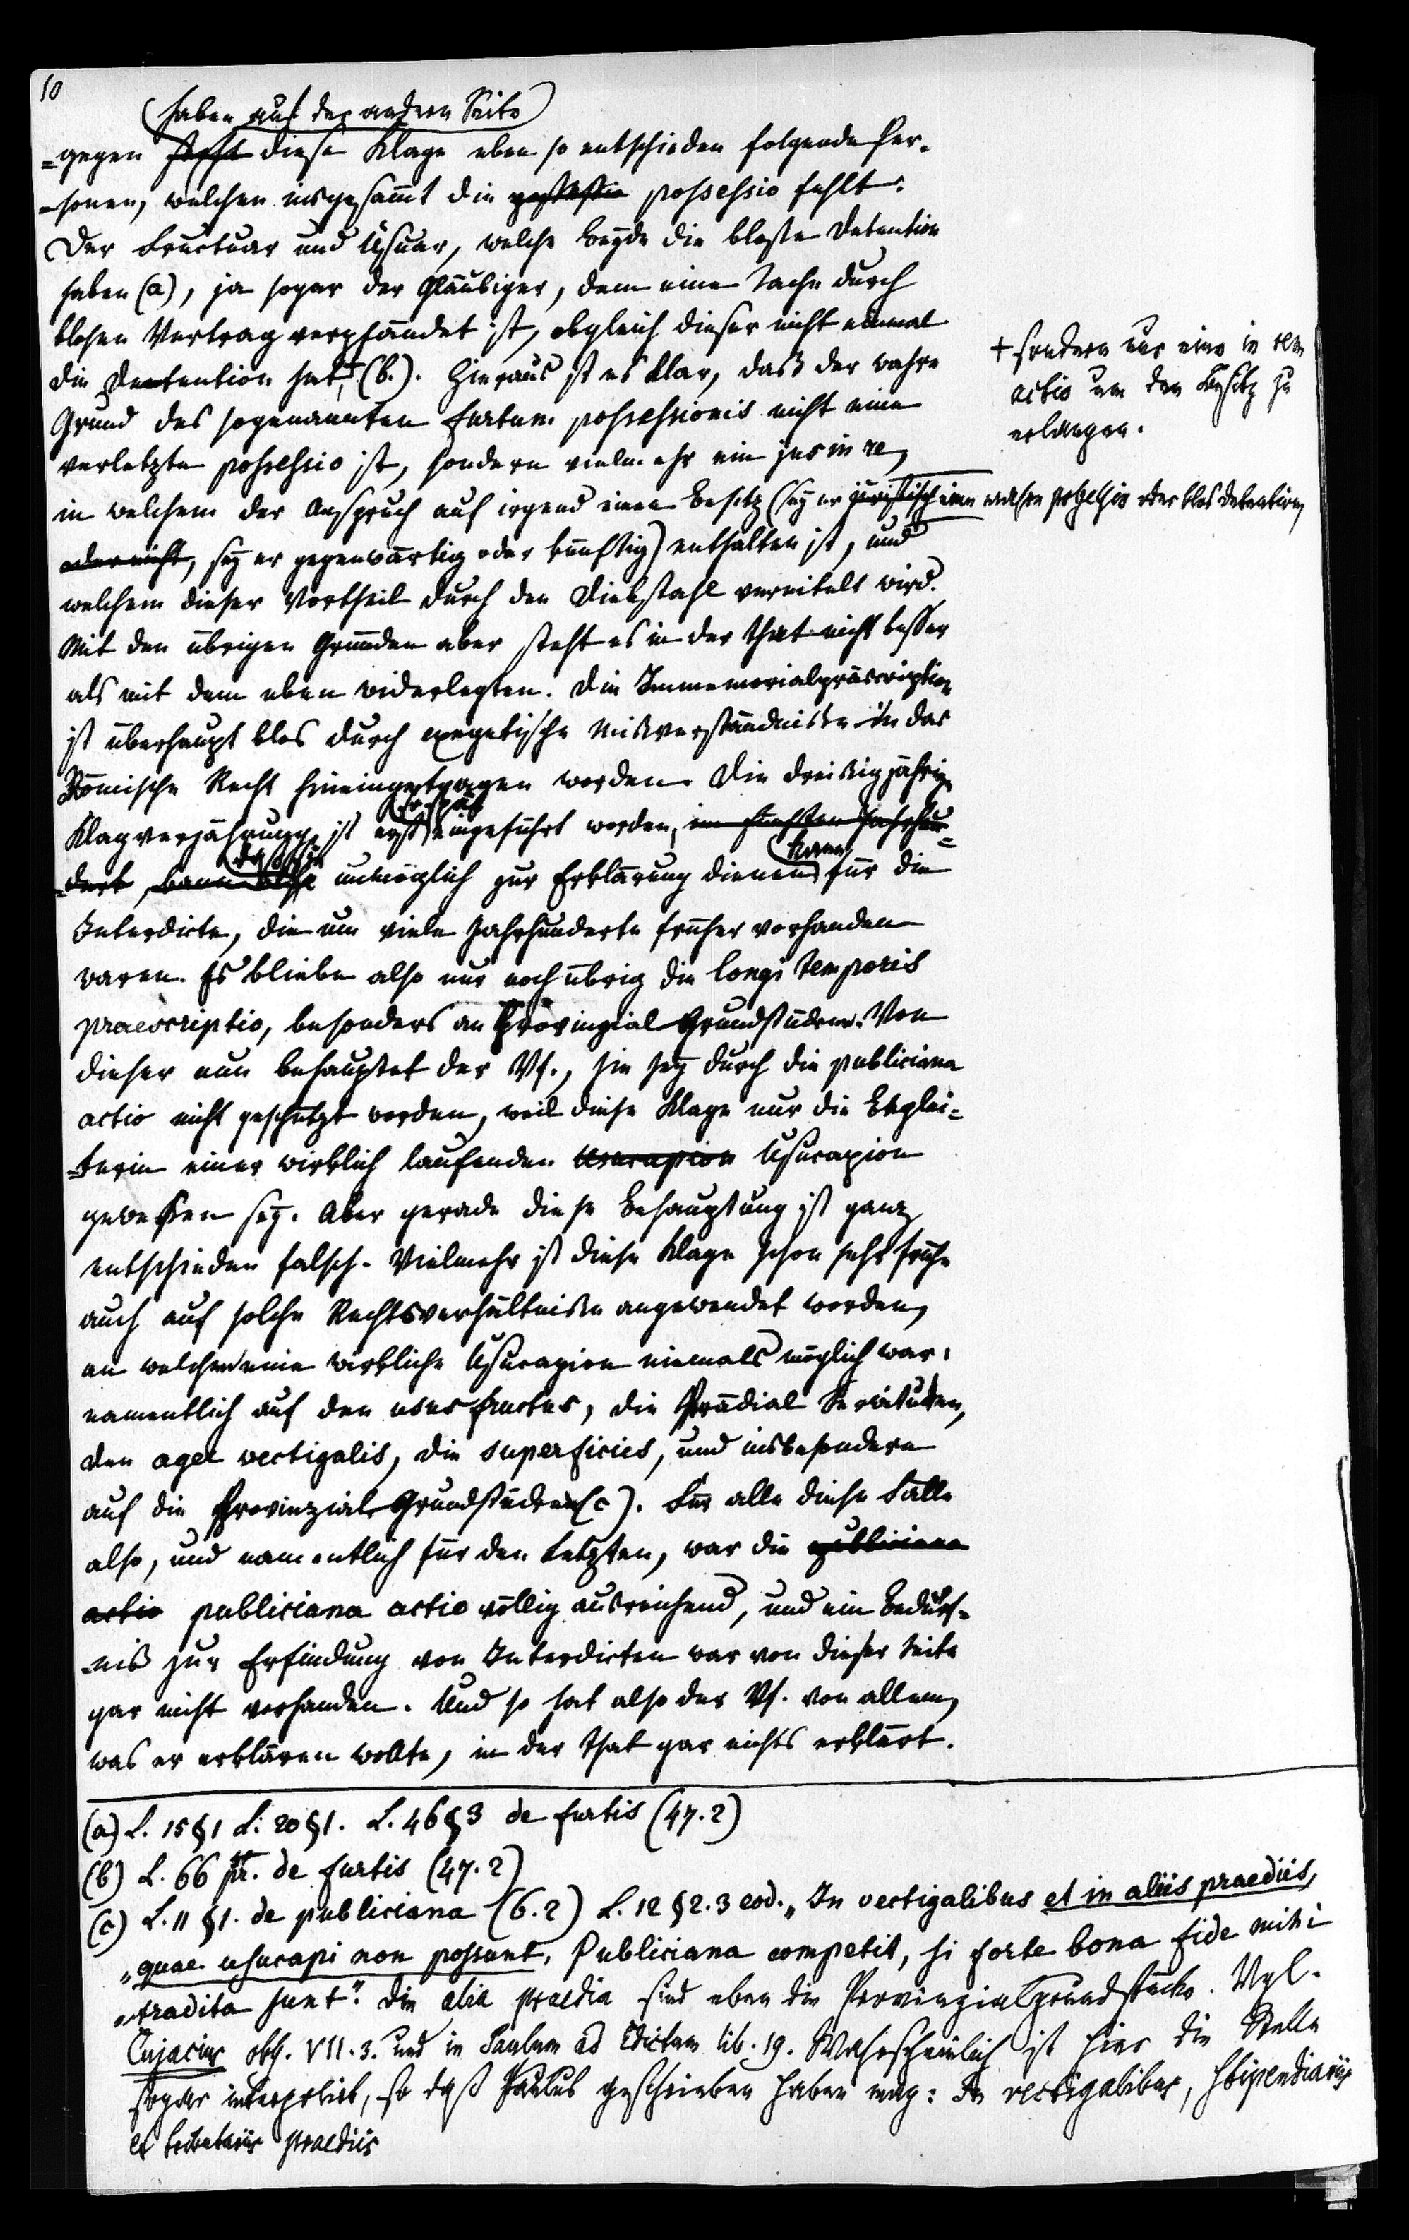 10
haben auf der andern Seite
=gegen steht diese Klage eben so entschieden folgende Per-
-sonen, welchen insgesammt die possessio possessio fehlt:
Der Fructuar und Usuar, welche beyde die bloße Detention
haben (a), ja sogar der Gläubiger, dem eine Sache durch
bloßen Vertrag verpfändet ist, obgleich dieser nicht einmal
die Detention hat + (b.). Hieraus ist es klar, daß der wahre
+ sondern nur eine in rem
actio um den Besitz zu
erlangen.
Grund des sogenannten furtum possessionis nicht eine
verletzte possessio ist, sondern vielmehr ein jus in re,
in welchem der Anspruch auf irgend einen Besitz (sey er juristisch einen wahre possessio oder blos Detention,
oder nicht, sey er gegenwärtig oder künftig) enthalten ist, und
welchem dieser Vortheil durch den Diebstahl vereitelt wird.
Mit den übrigen Gründen aber steht es in der That nicht besser
als mit dem eben widerlegten. Die Immemorialpräscription
ist überhaupt blos durch exegetische Misverständnisse in das
Römische Recht hineingetragen worden. Die dreissigjährige
Klagverjährung ist erst so spät eingeführt worden, im fünften Jahrhun=
-dert, kann also daß sie unmöglich zur Erklärung dienen kann für die
Interdicte, die um viele Jahrhunderte früher vorhanden
waren. Es bliebe also nur noch übrig die longi temporis
praescriptio, besonders an Provinzial Grundstücken. Von
dieser nun behauptet der Vf., sie sey durch die publiciana
actio nicht geschützt worden, weil diese Klage nur die Beglei=
-terin einer wirklich laufenden Usucapion Usucapion
gewesen sey. Aber gerade diese Behauptung ist ganz
entschieden falsch. Vielmehr ist diese Klage schon sehr frühe
auch auf solche Rechtsverhältnisse angewendet worden,
an welchen eine wirkliche Usucapion niemals möglich war:
namentlich auf den ususfructus, die Prädial Servituten,
den ager vectigalis, die superficies, und insbesondere
auf die Provinzial Grundstücke (c). Für alle diese Fälle
also, und namentlich für den letzten, war die publiciana
actio publiciana actio völlig ausreichend, und ein Bedürf-
-nis zur Erfindung von Interdicten war von dieser Seite
gar nicht vorhanden. Und so hat also der Vf. von allem,
was er erklären wollte, in der That gar nichts erklärt.
(a) L. 15 §1 L. 20 §1. L. 46 §3 de furtis (47.2)
(b) L. 66 pr. de furtis (47.2)
(c) L. 11 §1. de publiciana (6.2) L. 12 §2.3 eod. „In vectigalibus et in aliis praediis,
„quae usucapi non possunt, Publiciana competit, si forte bona fide mihi
„tradita sunt". Die alia praedia sind eben die Provinzialgrundstücke. Vgl.
Cujacius obs. VII.3. und in Paulum ad Edictum lib. 19. Wahrscheinlich ist hier die Stelle
sogar interpolirt, so daß Paulus geschrieben haben mag: In vectigalibus, stipendiariis
et tributariis praediis